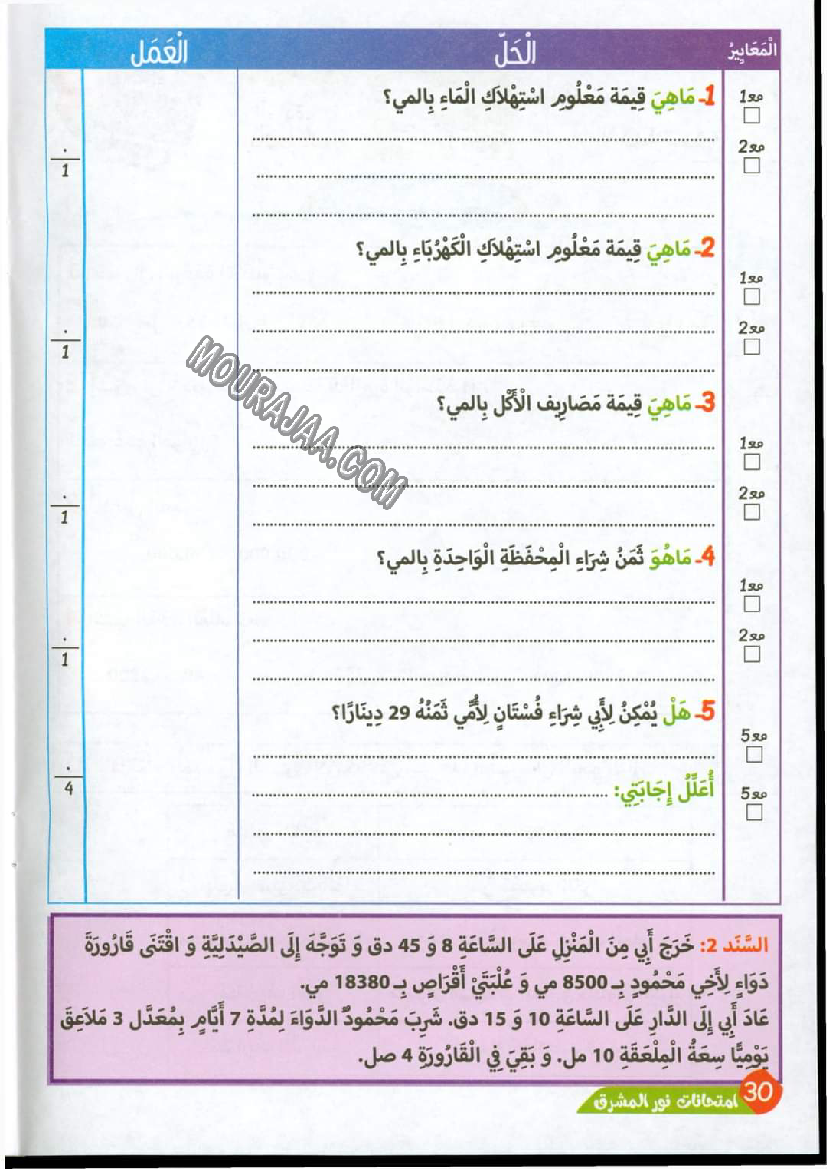 الْمَعَايِيرُ الْحَلّ الْعَمَل
1- مَاهِيَ قِيمَة مَعْلُومِ اسْتِهْلاَكِ الْمَاءِ بِالمي؟
مع1
مع2
1
2- مَاهِيَ قِيمَة مَعْلُومِ اسْتِهْلاَكِ الْكَهْرُبَاءِ بِالمي؟
مع1
مع2
1
MOURAJAA.COM
3- مَاهِيَ قِيمَة مَصَارِيف الْأَكْل بِالمي؟
مع1
مع2
1
4- مَاهُوَ ثَمَنُ شِرَاءِ الْمِحْفَظَةِ الْوَاحِدَةِ بِالمي؟
مع1
مع2
1
5- هَلْ يُمْكِنُ لِأَبِي شِرَاءِ فُسْتَانٍ لِأُمِّي ثَمَنُهُ 29 دِينَارًا؟
مع5
أُعَلِّلُ إِجَابَتِي:
مع5
4
السَّنَد 2: خَرَجَ أَبِي مِنَ الْمَنْزِلِ عَلَى السَّاعَةِ 8 وَ 45 دق وَ تَوَجَّهَ إِلَى الصَّيْدَلِيَّةِ وَ اقْتَنَى قَارُورَةَ
دَوَاءٍ لِأَخِي مَحْمُودٍ بِـ 8500 مي وَ عُلْبَتَيْ أَقْرَاصٍ بِـ 18380 مي.
عَادَ أَبِي إِلَى الدَّارِ عَلَى السَّاعَةِ 10 وَ 15 دق. شَرِبَ مَحْمُودٌ الدَّوَاءَ لِمُدَّةِ 7 أَيَّامٍ بِمُعَدَّل 3 مَلاَعِقَ
يَوْمِيًّا سِعَةُ الْمِلْعَقَةِ 10 مل. وَ بَقِيَ فِي الْقَارُورَةِ 4 صل.
30 امتحانات نور المشرق